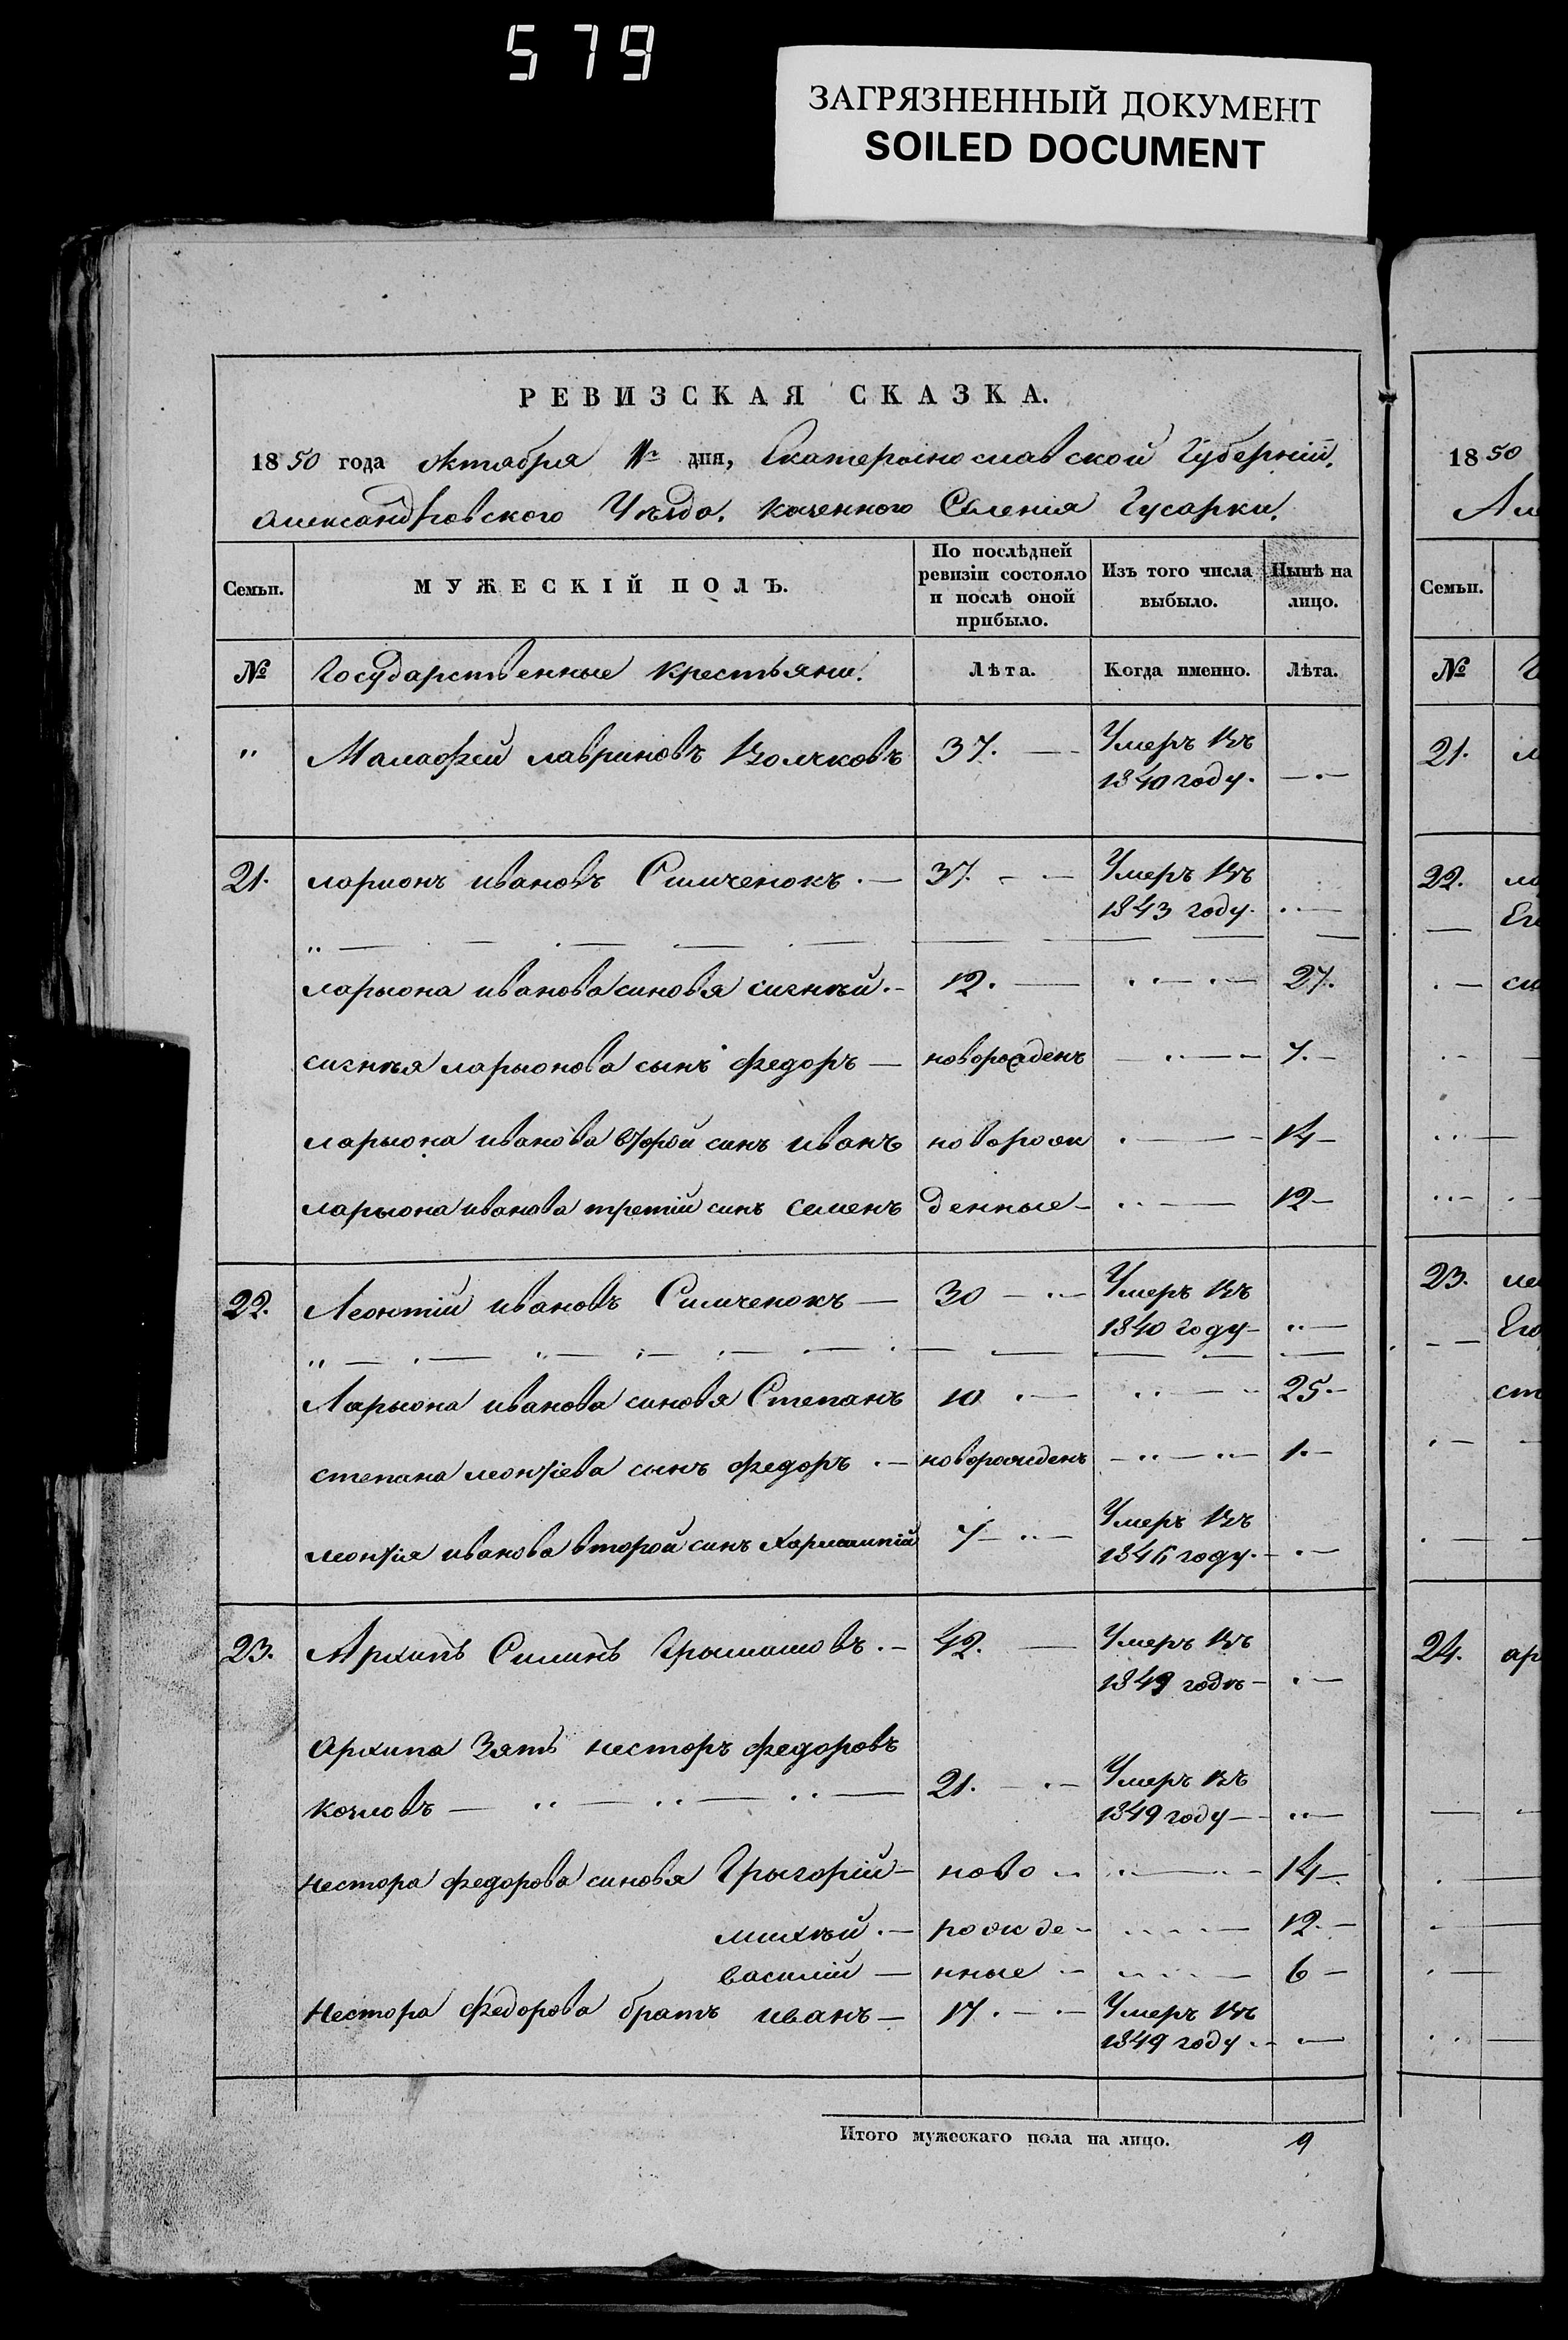 579
ЗАГРЯЗНЕННЫЙ ДОКУМЕНТ
SOILED DOCUMENT
РЕВИЗСКАЯ СКАЗКА.
1850 года октября дня, Екатеринославской Губерніи,
Александровского Уѣзда. казенного Селенія Гусарки.
Семьи. МУЖЕСКІЙ ПОЛЪ. По послѣдней ревизіи состояло и послѣ оной прибыло. Изъ того числа выбыло. Нынѣ на лицо.
№ Государственные крестьяни. Лѣта. Когда именно. Лѣта.
" Малафей лавриновъ Волчковъ 37. Умеръ Въ
1840 году.
21. ларионъ ивановъ Симченокъ. 37. Умеръ Въ
1843 году.
ларыона иванова синовя сигнѣй. 12. 27.
сигнѣя ларыонова сынъ федоръ новорожденъ 7.
ларыона иванова второй синъ иванъ новорож 14
ларыона иванова третій синъ семенъ денные 12
22. Леонтій ивановъ Симченокъ 30 Умеръ Въ
1840 году
Ларыона иванова синовя Степанъ 10 25
степана леонтіева сынъ федоръ. новорожденъ 1.
леонтія иванова второй синъ Харлампій 7 Умеръ Въ
1846 году.
23. Архипъ Симинъ 42. Умеръ Въ
1849 годѣ
Архипа Зять несторъ федоровъ
21. Умеръ въ
1849 году
Нестора федорова синовя Грыгорій ново 14
михѣй. рожде 12.
василій нные 6
Нестора федорова братъ иванъ 17. Умеръ Въ
1849 году.
Итого мужескаго пола на лицо. 9
1850
Семьи.
№
21.
22.
23.
24.